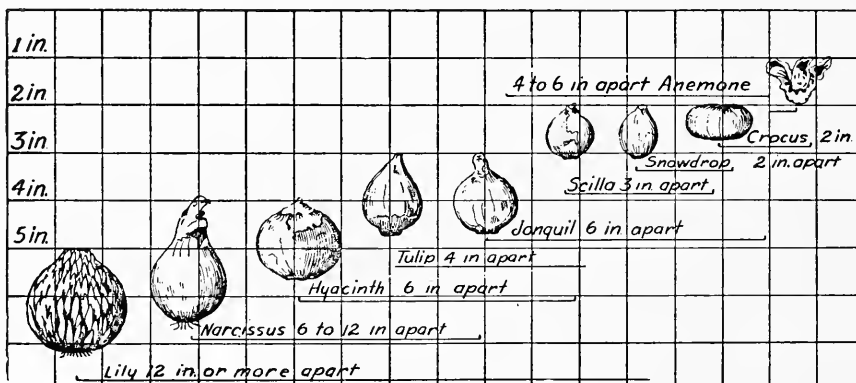 1 in.
4 to 6 in apart Anemone
2 in
3 in
Crocus, 2 in.
Snowdrop 2 in. apart
4 in.
Scilla 3 in apart
5 in.
Jonquil 6 in apart
Tulip 4 in apart
Hyacinth 6 in apart
Narcissus 6 to 12 in apart
Lily 12 in. or more apart